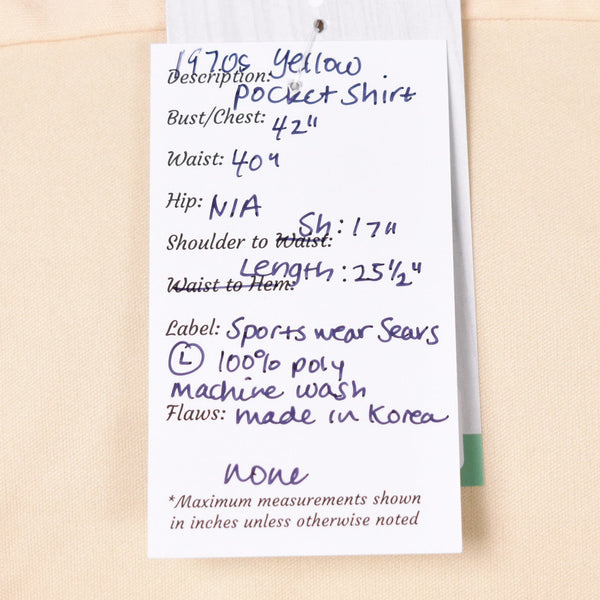 1970s Yellow
Description:
pocket shirt
Bust/Chest: 42"
Waist: 40"
Hip: N/A
Sh: 17"
Shoulder to Waist:
Length: 25 1/2"
Waist to Hem:
Label: Sports wear Sears
L 100% poly
machine wash
Flaws: made in Korea
none
*Maximum measurements shown
in inches unless otherwise noted